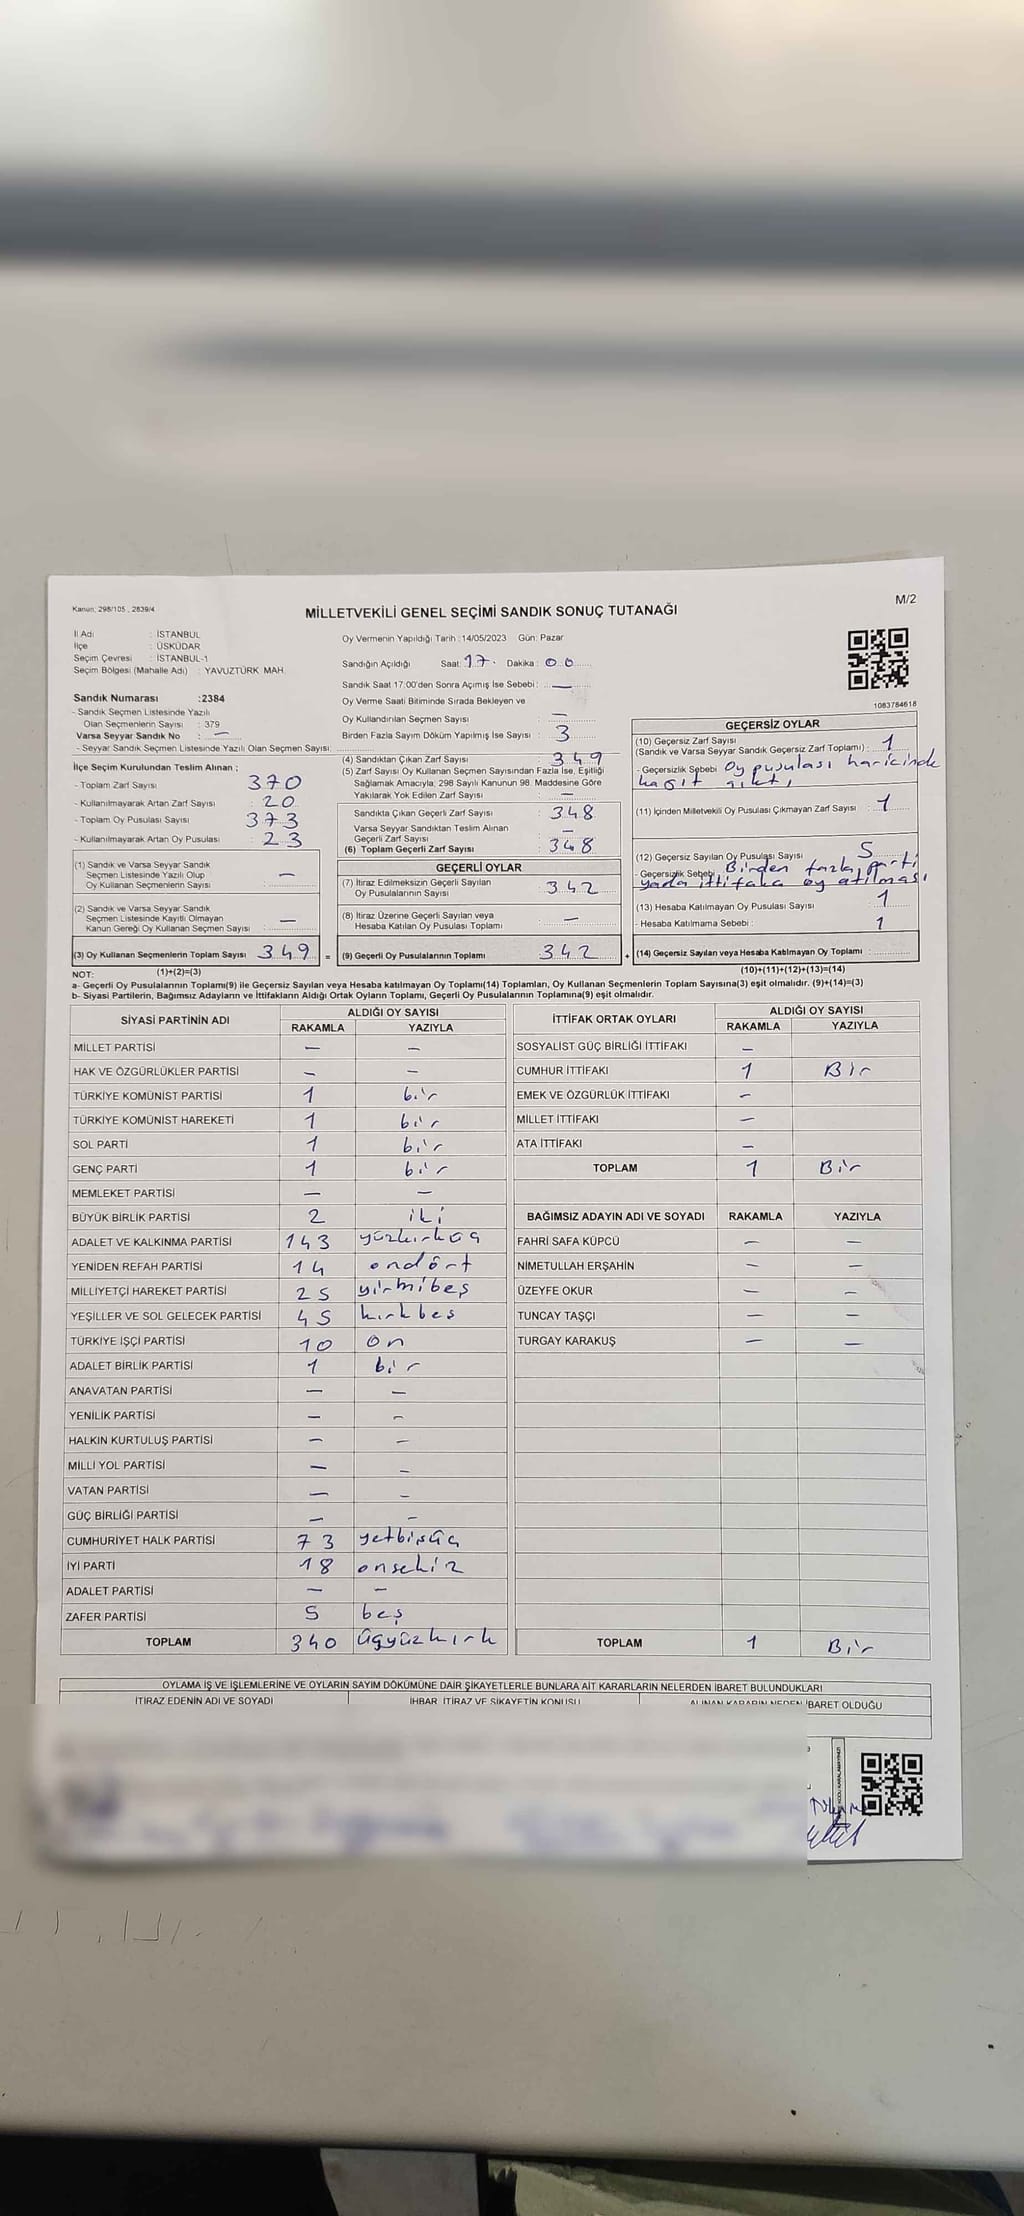 Kanun; 298/105 , 2839/4
MİLLETVEKİLİ GENEL SEÇİMİ SANDIK SONUÇ TUTANAĞI
M/2
İl Adı : İSTANBUL
İlçe : ÜSKÜDAR
Seçim Çevresi : İSTANBUL-1
Seçim Bölgesi (Mahalle Adı) : YAVUZTÜRK MAH.
Sandık Numarası :2384
- Sandık Seçmen Listesinde Yazılı
Olan Seçmenlerin Sayısı : 379
Varsa Seyyar Sandık No : —
- Seyyar Sandık Seçmen Listesinde Yazılı Olan Seçmen Sayısı:
İlçe Seçim Kurulundan Teslim Alınan ;
- Toplam Zarf Sayısı 370
- Kullanılmayarak Artan Zarf Sayısı : 20
- Toplam Oy Pusulası Sayısı : 373
- Kullanılmayarak Artan Oy Pusulası : 23
(1) Sandık ve Varsa Seyyar Sandık
Seçmen Listesinde Yazılı Olup
Oy Kullanan Seçmenlerin Sayısı : —
(2) Sandık ve Varsa Seyyar Sandık
Seçmen Listesinde Kayıtlı Olmayan
Kanun Gereği Oy Kullanan Seçmen Sayısı : —
(3) Oy Kullanan Seçmenlerin Toplam Sayısı 349 =
Oy Vermenin Yapıldığı Tarih :14/05/2023 Gün: Pazar
Sandığın Açıldığı Saat: 17. Dakika : 00
Sandık Saat 17:00'den Sonra Açımış İse Sebebi : —
Oy Verme Saati Bitiminde Sırada Bekleyen ve
Oy Kullandırılan Seçmen Sayısı : —
Birden Fazla Sayım Döküm Yapılmış İse Sayısı : 3
(4) Sandıktan Çıkan Zarf Sayısı : 349
(5) Zarf Sayısı Oy Kullanan Seçmen Sayısından Fazla İse, Eşitliği
Sağlamak Amacıyla, 298 Sayılı Kanunun 98. Maddesine Göre
Yakılarak Yok Edilen Zarf Sayısı : —
Sandıkta Çıkan Geçerli Zarf Sayısı : 348
Varsa Seyyar Sandıktan Teslim Alınan
Geçerli Zarf Sayısı : —
(6) Toplam Geçerli Zarf Sayısı : 348
GEÇERLİ OYLAR
(7) İtiraz Edilmeksizin Geçerli Sayılan
Oy Pusulalarının Sayısı : 342
(8) İtiraz Üzerine Geçerli Sayılan veya
Hesaba Katılan Oy Pusulası Toplamı : —
(9) Geçerli Oy Pusulalarının Toplamı : 342 +
1083784618
GEÇERSİZ OYLAR
(10) Geçersiz Zarf Sayısı
(Sandık ve Varsa Seyyar Sandık Geçersiz Zarf Toplamı) : 1
- Geçersizlik Sebebi Oy pusulası haricinde
kağıt çıktı
(11) İçinden Milletvekili Oy Pusulası Çıkmayan Zarf Sayısı : 1
(12) Geçersiz Sayılan Oy Pusulası Sayısı : 5
- Geçersizlik Sebebi Birden fazla parti
yada ittifaka oy atılması
(13) Hesaba Katılmayan Oy Pusulası Sayısı : 1
- Hesaba Katılmama Sebebi : 1
(14) Geçersiz Sayılan veya Hesaba Katılmayan Oy Toplamı :
NOT: (1)+(2)=(3) (10)+(11)+(12)+(13)=(14)
a- Geçerli Oy Pusulalarının Toplamı(9) ile Geçersiz Sayılan veya Hesaba katılmayan Oy Toplamı(14) Toplamları, Oy Kullanan Seçmenlerin Toplam Sayısına(3) eşit olmalıdır. (9)+(14)=(3)
b- Siyasi Partilerin, Bağımsız Adayların ve İttifakların Aldığı Ortak Oyların Toplamı, Geçerli Oy Pusulalarının Toplamına(9) eşit olmalıdır.
SİYASİ PARTİNİN ADI ALDIĞI OY SAYISI
RAKAMLA YAZIYLA
MİLLET PARTİSİ — —
HAK VE ÖZGÜRLÜKLER PARTİSİ — —
TÜRKİYE KOMÜNİST PARTİSİ 1 bir
TÜRKİYE KOMÜNİST HAREKETİ 1 bir
SOL PARTİ 1 bir
GENÇ PARTİ 1 bir
MEMLEKET PARTİSİ — —
BÜYÜK BİRLİK PARTİSİ 2 iki
ADALET VE KALKINMA PARTİSİ 143 yüzkırküç
YENİDEN REFAH PARTİSİ 14 ondört
MİLLİYETÇİ HAREKET PARTİSİ 25 yirmibeş
YEŞİLLER VE SOL GELECEK PARTİSİ 45 kırkbeş
TÜRKİYE İŞÇİ PARTİSİ 10 on
ADALET BİRLİK PARTİSİ 1 bir
ANAVATAN PARTİSİ — —
YENİLİK PARTİSİ — —
HALKIN KURTULUŞ PARTİSİ — —
MİLLİ YOL PARTİSİ — —
VATAN PARTİSİ — —
GÜÇ BİRLİĞİ PARTİSİ — —
CUMHURİYET HALK PARTİSİ 73 yetbişüç
İYİ PARTİ 18 onsekiz
ADALET PARTİSİ — —
ZAFER PARTİSİ 5 beş
TOPLAM 340 üçyüzkırk
İTTİFAK ORTAK OYLARI ALDIĞI OY SAYISI
RAKAMLA YAZIYLA
SOSYALİST GÜÇ BİRLİĞİ İTTİFAKI —
CUMHUR İTTİFAKI 1 Bir
EMEK VE ÖZGÜRLÜK İTTİFAKI —
MİLLET İTTİFAKI —
ATA İTTİFAKI —
TOPLAM 1 Bir
BAĞIMSIZ ADAYIN ADI VE SOYADI RAKAMLA YAZIYLA
FAHRİ SAFA KÜPCÜ — —
NİMETULLAH ERŞAHİN — —
ÜZEYFE OKUR — —
TUNCAY TAŞÇI — —
TURGAY KARAKUŞ — —
TOPLAM 1 Bir
OYLAMA İŞ VE İŞLEMLERİNE VE OYLARIN SAYIM DÖKÜMÜNE DAİR ŞİKAYETLERLE BUNLARA AİT KARARLARIN NELERDEN İBARET BULUNDUKLARI
İTİRAZ EDENİN ADI VE SOYADI İHBAR, İTİRAZ VE ŞİKAYETİN KONUSU ALINAN KARARIN NEDEN İBARET OLDUĞU